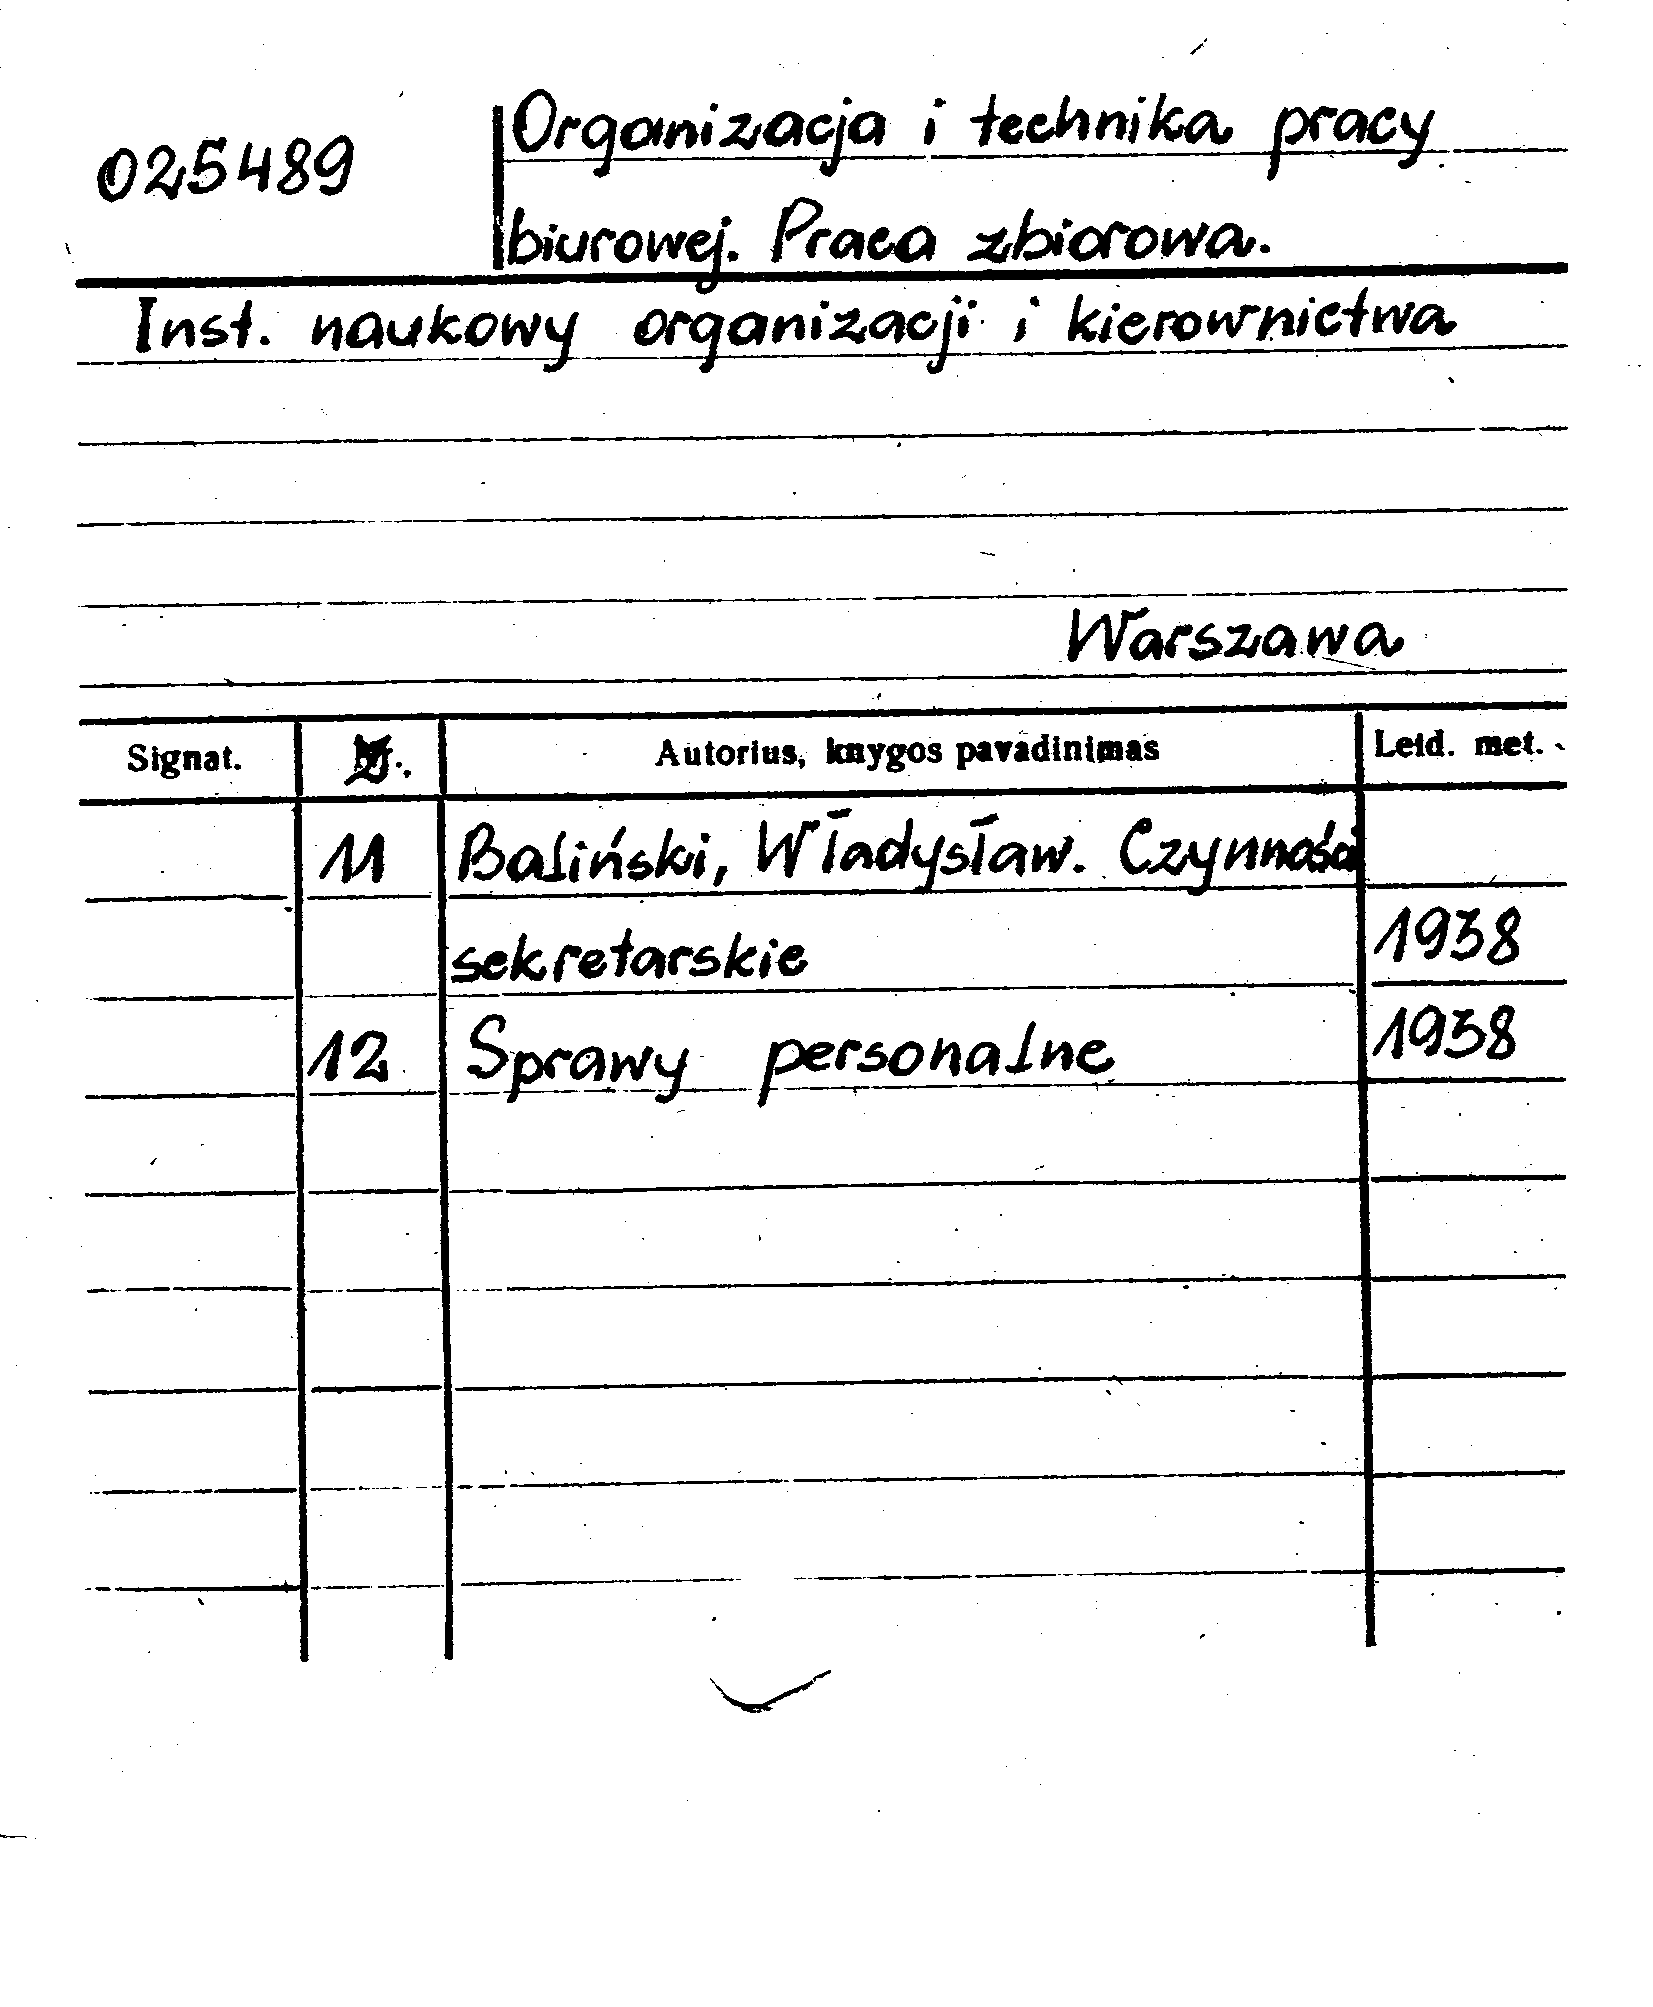 Organizacja i technika pracy
025489
biurowej. Praca zbiorowa.
Inst. naukowy organizacji i kierownictwa
Warszawa
Signat. Autorius, knygos pavadinimas Leid. met.
11 Baliński, Władysław. Czynności
sekretarskie 1938
12 Sprawy personalne 1938